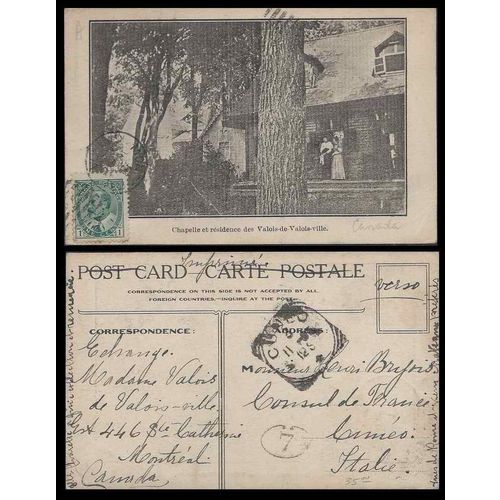 Chapelle et résidence des Valois-de-Valois-ville.
Canada
1 1
Imprimé
POST CARD CARTE POSTALE
CORRESPONDENCE ON THIS SIDE IS NOT ACCEPTED BY ALL
FOREIGN COUNTRIES.—INQUIRE AT THE POST.
verso
CORRESPONDENCE:
ADDRESS:
CUNEO
11
12
Echange.
Madame Valois
de Valois-ville
Est 446 Ste Catherine
Montréal
Canada
Monsieur Henri
Consul de France
Cunéo
Italie.
7
35